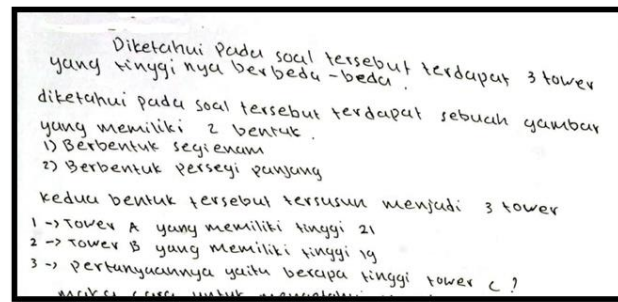 Diketahui pada soal tersebut terdapat 3 tower
yang tingginya berbeda-beda.
diketahui pada soal tersebut terdapat sebuah gambar
yang memiliki 2 bentuk.
1) Berbentuk segienam
2) Berbentuk persegi panjang
kedua bentuk tersebut tersusun menjadi 3 tower
1 -> Tower A yang memiliki tinggi 21
2 -> Tower B yang memiliki tinggi 19
3 -> pertanyaannya yaitu berapa tinggi tower C?
maka cara untuk mengetahui